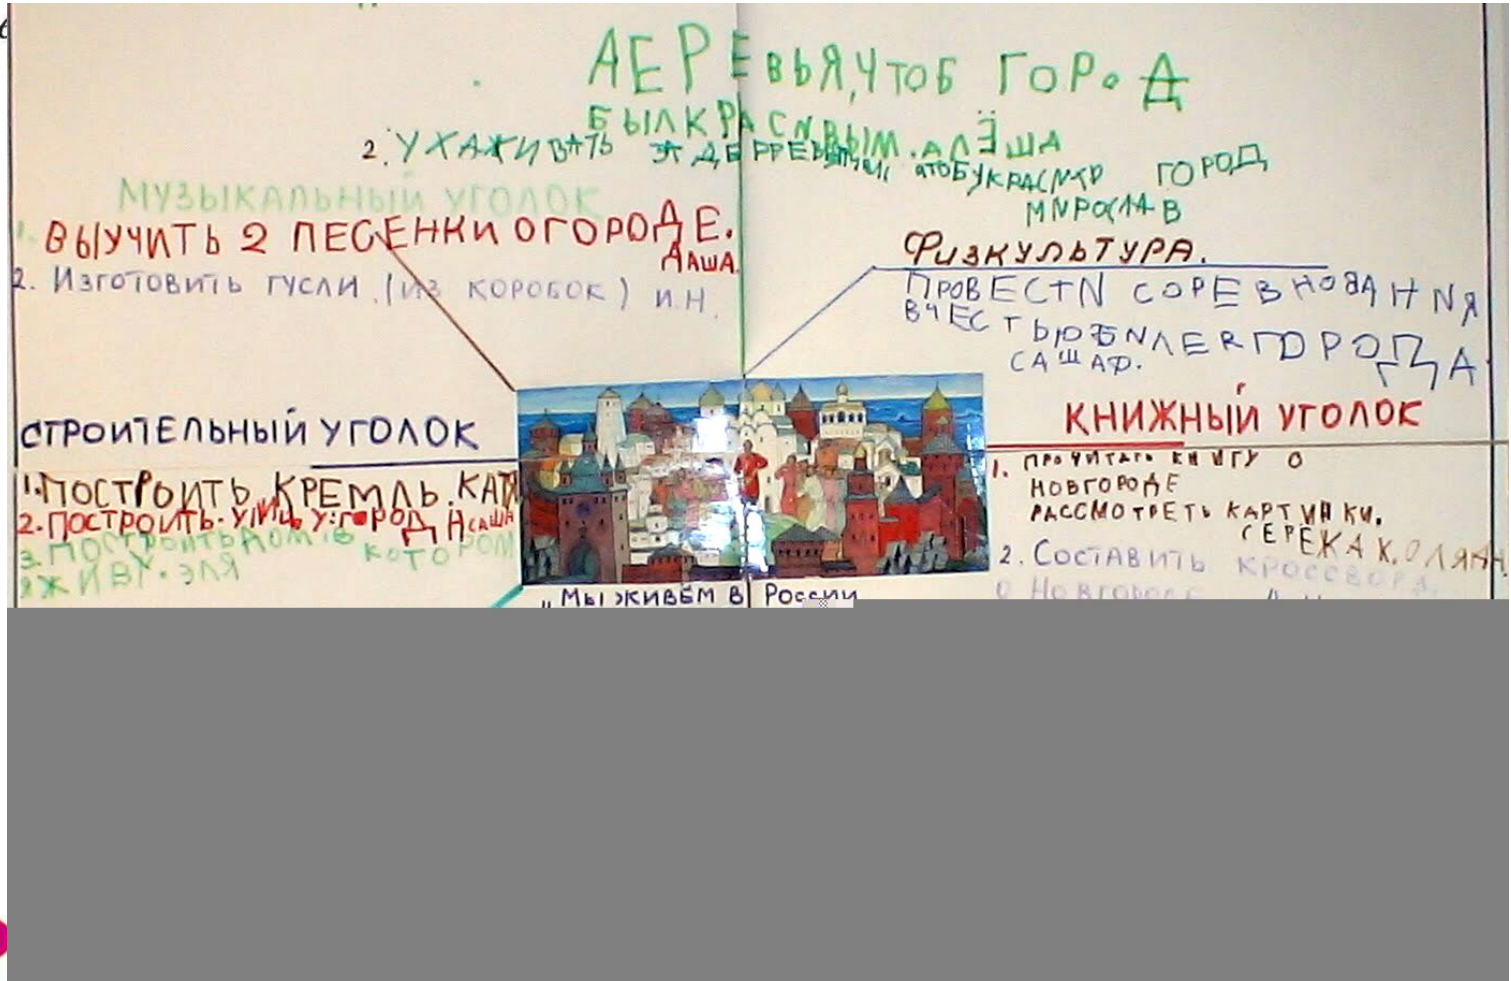 ДЕРЕВЬЯ, ЧТОБ ГОРОД
БЫЛ КРАСNВЫМ. АЛЁША
2. УХАЖИВАТЬ ГОРОД
МNРОСЛАВ
МУЗЫКАЛЬНЫЙ УГОЛОК
1. ВЫУЧИТЬ 2 ПЕСЕНКИ О ГОРОДЕ.
ДАША.
2. Изготовить гусли. (из коробок) И.Н.
Физкультура.
ПРОВЕСТN СОРЕВНОВАНNЯ
В ЧЕСТЬ ЮБNЛЕЯ ГОРОДА
САША Ф.
СТРОИТЕЛЬНЫЙ УГОЛОК
1. ПОСТРОИТЬ КРЕМЛЬ. КАТЯ
2. ПОСТРОИТЬ. УЛИЦУ: ГОРОДА САША
3. ПОСТРОИТЬ ДОМ В КОТОРОМ
Я ЖИВУ. ЭЛЯ
КНИЖНЫЙ УГОЛОК
1. ПРОЧИТАТЬ КНИГУ О
НОВГОРОДЕ
РАССМОТРЕТЬ КАРТИНКИ.
СЕРЁЖА К. ОЛЯ
2. Составить кроссворд
о Новгороде
„Мы живём в России